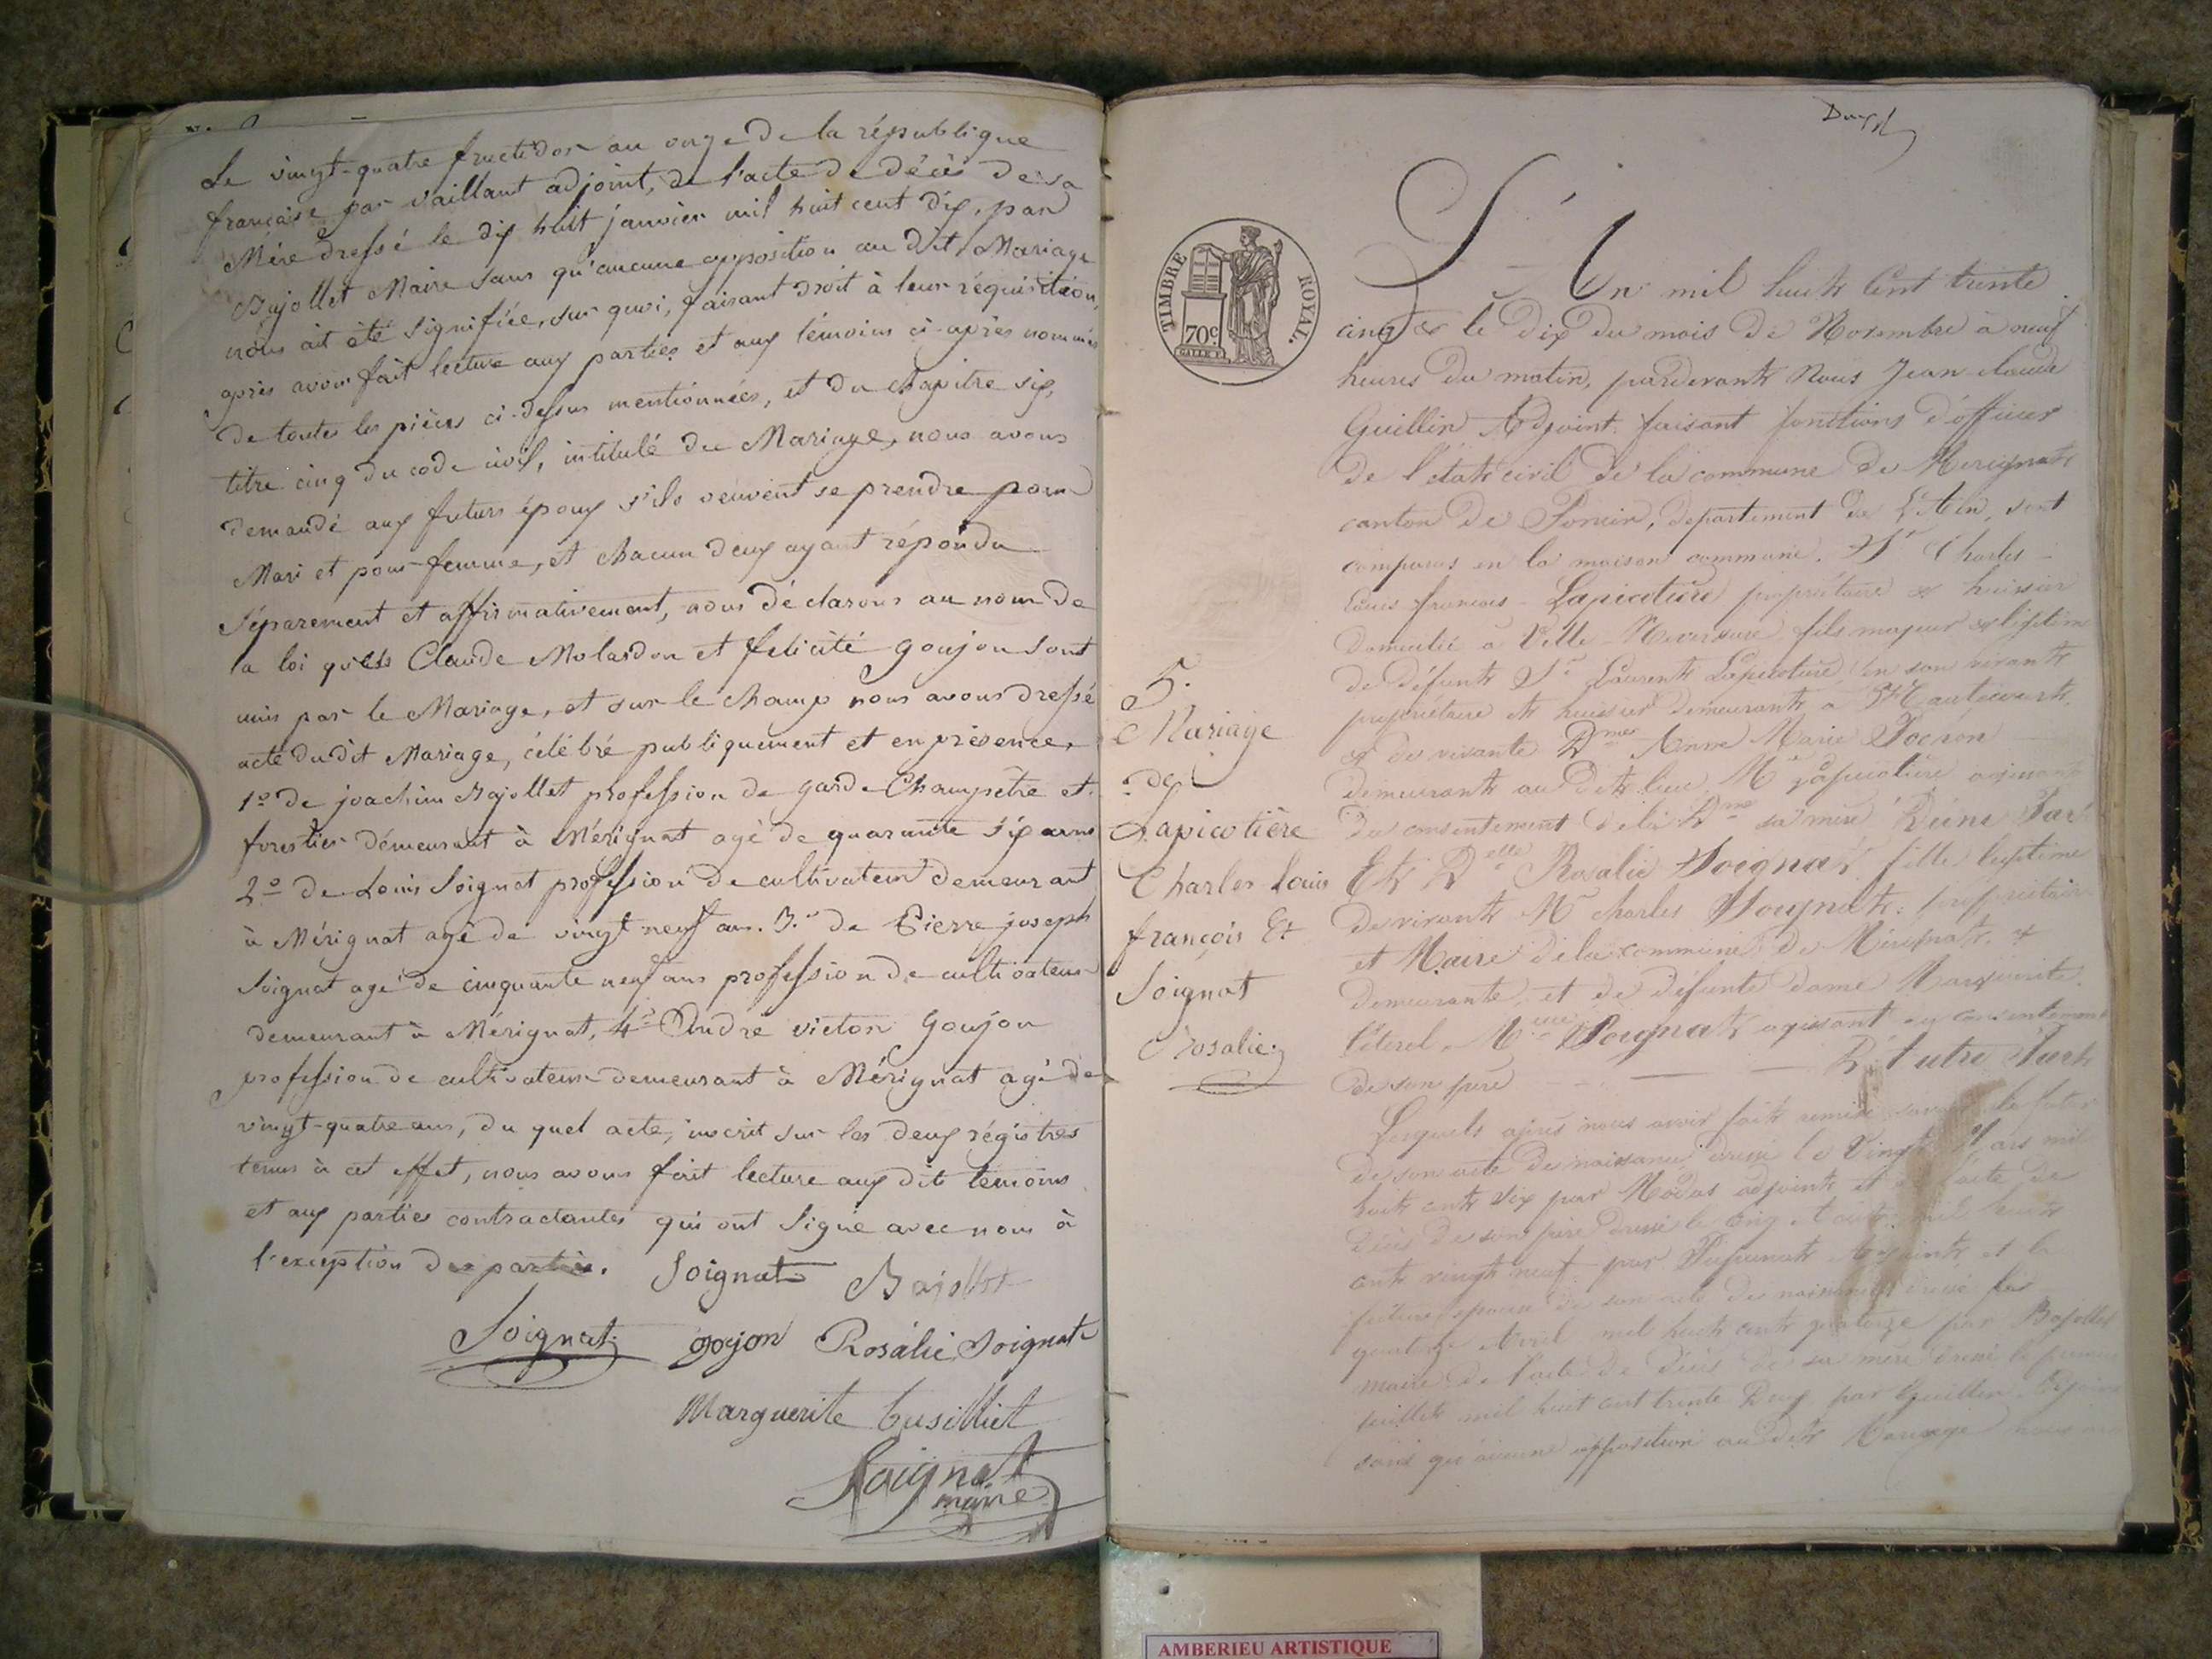 Le vingt-quatre fructidor an onze de la république
française par vaillant adjoint, de l'acte de décès de sa
Mère dressé le dix huit janvier mil huit cent dix, par
Bajollet Maire sans qu'aucune opposition au dit Mariage
nous ait été signifiée, sur quoi, faisant droit à leur réquisition,
après avoir fait lecture aux parties et aux témoins ci-après nommés
de toutes les pièces ci-dessus mentionnées, et du chapitre six,
titre cinq du code civil, intitulé du Mariage, nous avons
demandé aux futurs époux s'ils veuvent se prendre pour
Mari et pour femme, et chacun deux ayant répondu
séparement et affirmativement, nous déclarons au nom de
la loi que Claude Molardon et felicité goujon sont
unis par le Mariage, et sur le champ nous avons dressé
acte du dit Mariage, célébré publiquement et en présence,
1º de joachim Bajollet profession de garde Champêtre et
forestier démeurant à Mérignat agé de quarante six ans
2º de Louis Soignat profession de cultivateur demeurant
à Mérignat agé de vingt neuf ans. 3º de Pierre joseph
Soignat agé de cinquante neuf ans profession de cultivateur
demeurant à Mérignat, 4º André victor goujon
profession de cultivateur demeurant à Mérignat agé de
vingt-quatre ans, du quel acte, inscrit sur les deux régistres
tenus à cet effet, nous avons fait lecture aux dits témoins
et aux parties contractantes qui ont signé avec nous à
l'exception des parties. Soignat Bajollet
Soignat gojon Rosalie Soignat
Marguerite
Soignat
maire
TIMBRE ROYAL.
70c
L'An mil huit Cent trente
cinq & le dix du mois de Novembre à neuf
heures du matin, pardevant Nous Jean Claude
Guillin Adjoint faisant fonctions d'officier
de l'état civil de la commune de Merignat
canton de Poncin, departement de L'Ain, sont
comparus en la maison commune. Sr Charles
Louis françois Lapicotière propriétaire & huissier
Domicilié à Ville fils majeur & légitime
de défunt Sr Laurent Lapicotière, en son vivant
propriétaire et huissier demeurant à Hautecourt
et de vivante Dme Anne Marie Pochon
demeurant au dit lieu, Mr Lapicotière agissant
du consentement de la Dme sa mère D'une Part
Et Delle Rosalie Soignat fille légitime
de vivant Mr Charles Soignat propriétaire
et Maire de la commune de Mérignat, y
demeurante, et de défunte dame Marguerite
Mlle Soignat agissant du consentement
de son père D'Autre Part
Lesquels après nous avoir fait remise savoir le futur
de son acte de naissance dressé le Vingt Mars mil
huit cent six par adjoint et de l'acte de
décès de son père dressé le cinq mil huit
cent vingt neuf par Adjoint, et la
future épouse de son acte de naissance dressé le
quatorze Avril mil huit cent quatorze par Bajollet
maire de l'acte de décès de sa mère dressé le premier
juillet mil huit cent trente Deux par Guillin Adjoint
sans qu'aucune opposition au dit Mariage nous
5.
Mariage
de
Lapicotière
Charles Louis
françois Et
Soignat
Rosalie
AMBERIEU ARTISTIQUE